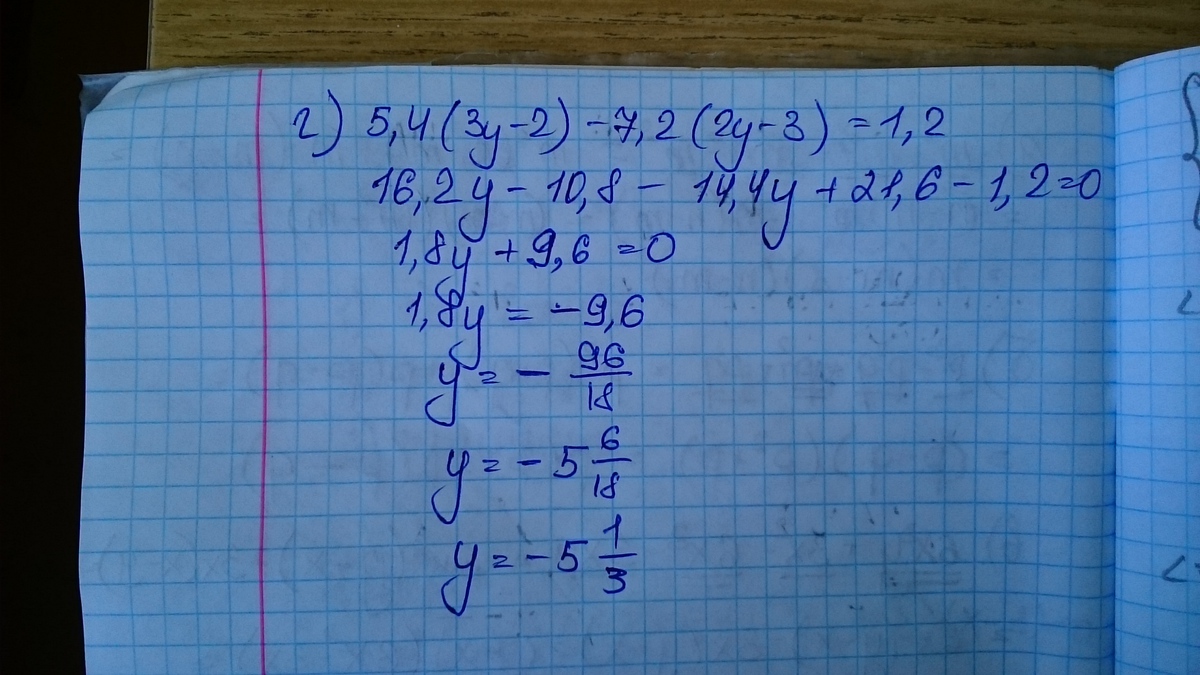 г) 5,4(3y-2)-7,2(2y-3)=1,2
16,2y-10,8-14,4y+21,6-1,2=0
1,8y+9,6=0
1,8y=-9,6
y=-96/18
y=-5 6/18
y=-5 1/3